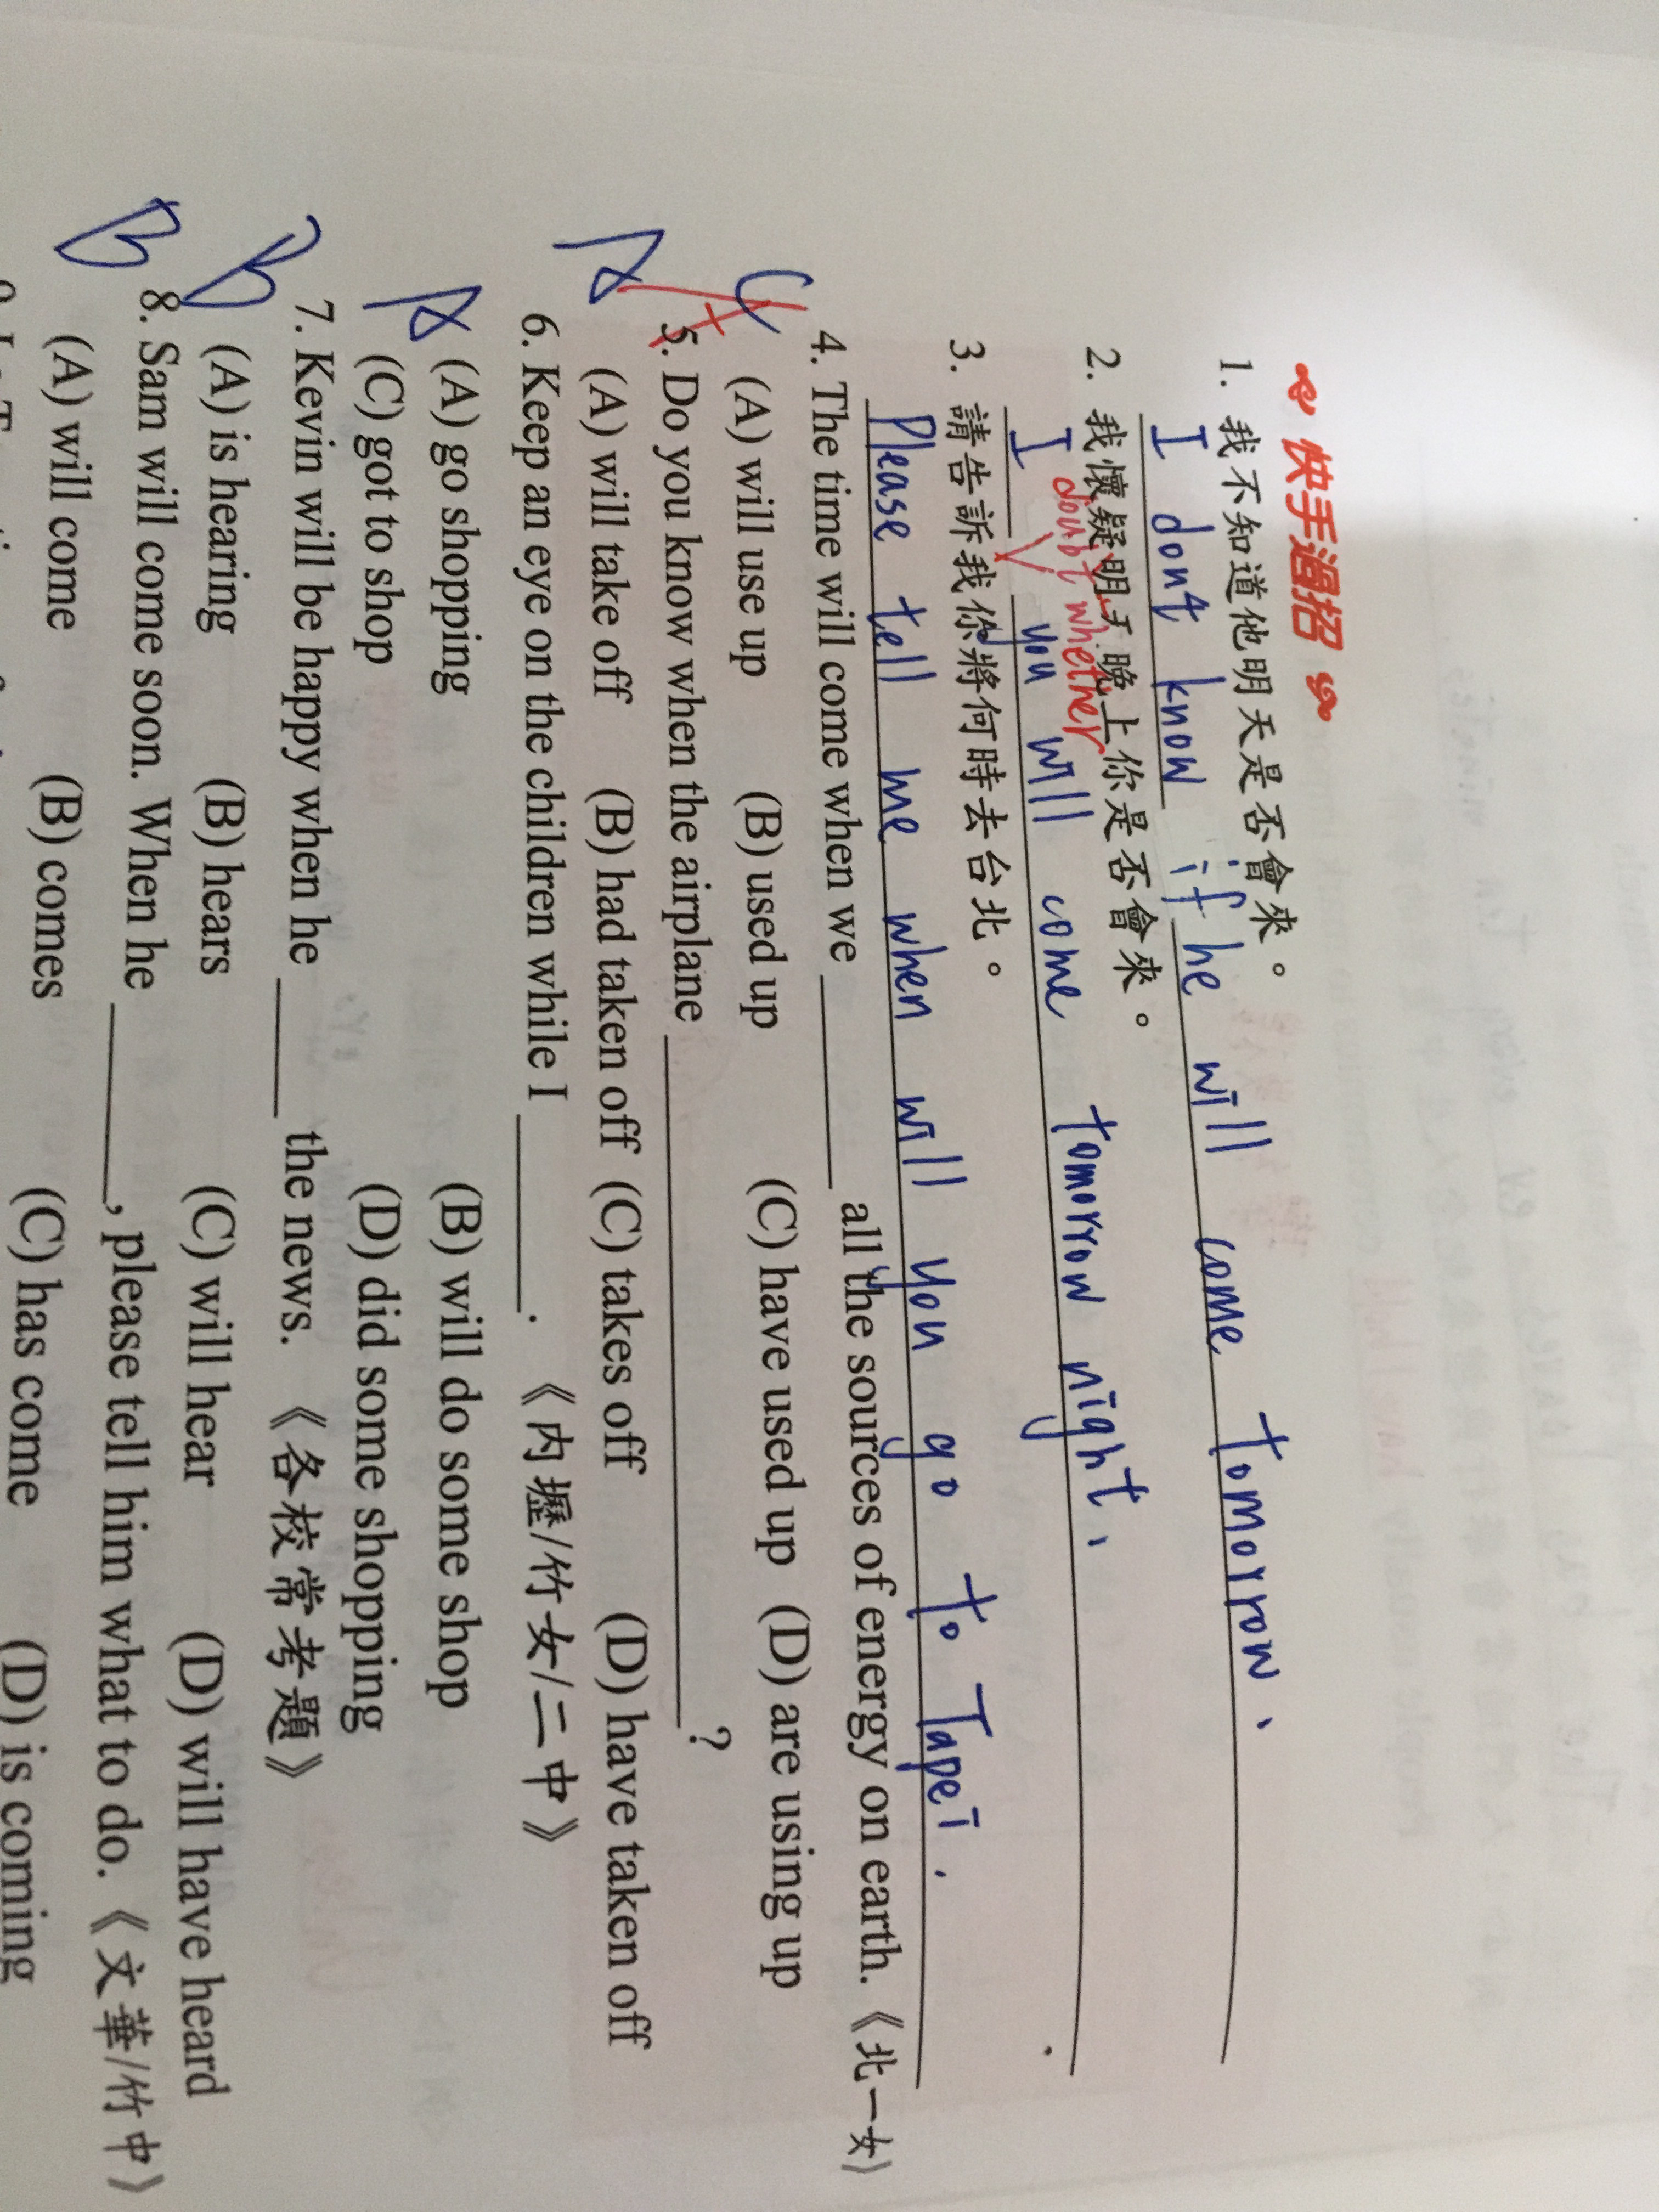 快手過招
1. 我不知道他明天是否會來。
I don't know if he will come tomorrow.
2. 我懷疑明天晚上你是否會來。
doubt whether
I you will come tomorrow night.
3. 請告訴我你將何時去台北。
Please tell me when will you go to Tapei.
C 4. The time will come when we ______ all the sources of energy on earth.《北一女》
(A) will use up (B) used up (C) have used up (D) are using up
A 5. Do you know when the airplane ______?
(A) will take off (B) had taken off (C) takes off (D) have taken off
A 6. Keep an eye on the children while I ______.《內壢/竹女/二中》
(A) go shopping (B) will do some shop
(C) got to shop (D) did some shopping
B 7. Kevin will be happy when he ______ the news.《各校常考題》
(A) is hearing (B) hears (C) will hear (D) will have heard
B 8. Sam will come soon. When he ______, please tell him what to do.《文華/竹中》
(A) will come (B) comes (C) has come (D) is coming